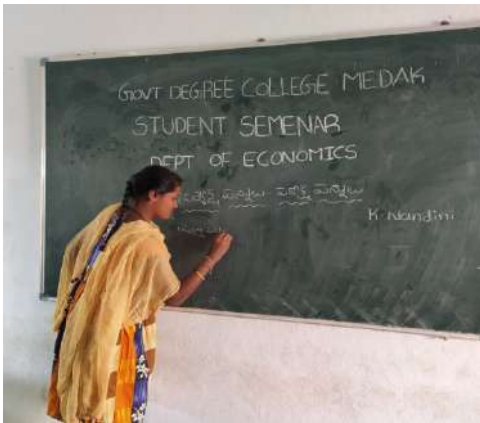 GOVT DEGREE COLLEGE MEDAK
STUDENT SEMENAR
DEPT OF ECONOMICS
పన్నులు పరోక్ష పన్నులు
K. Nandini